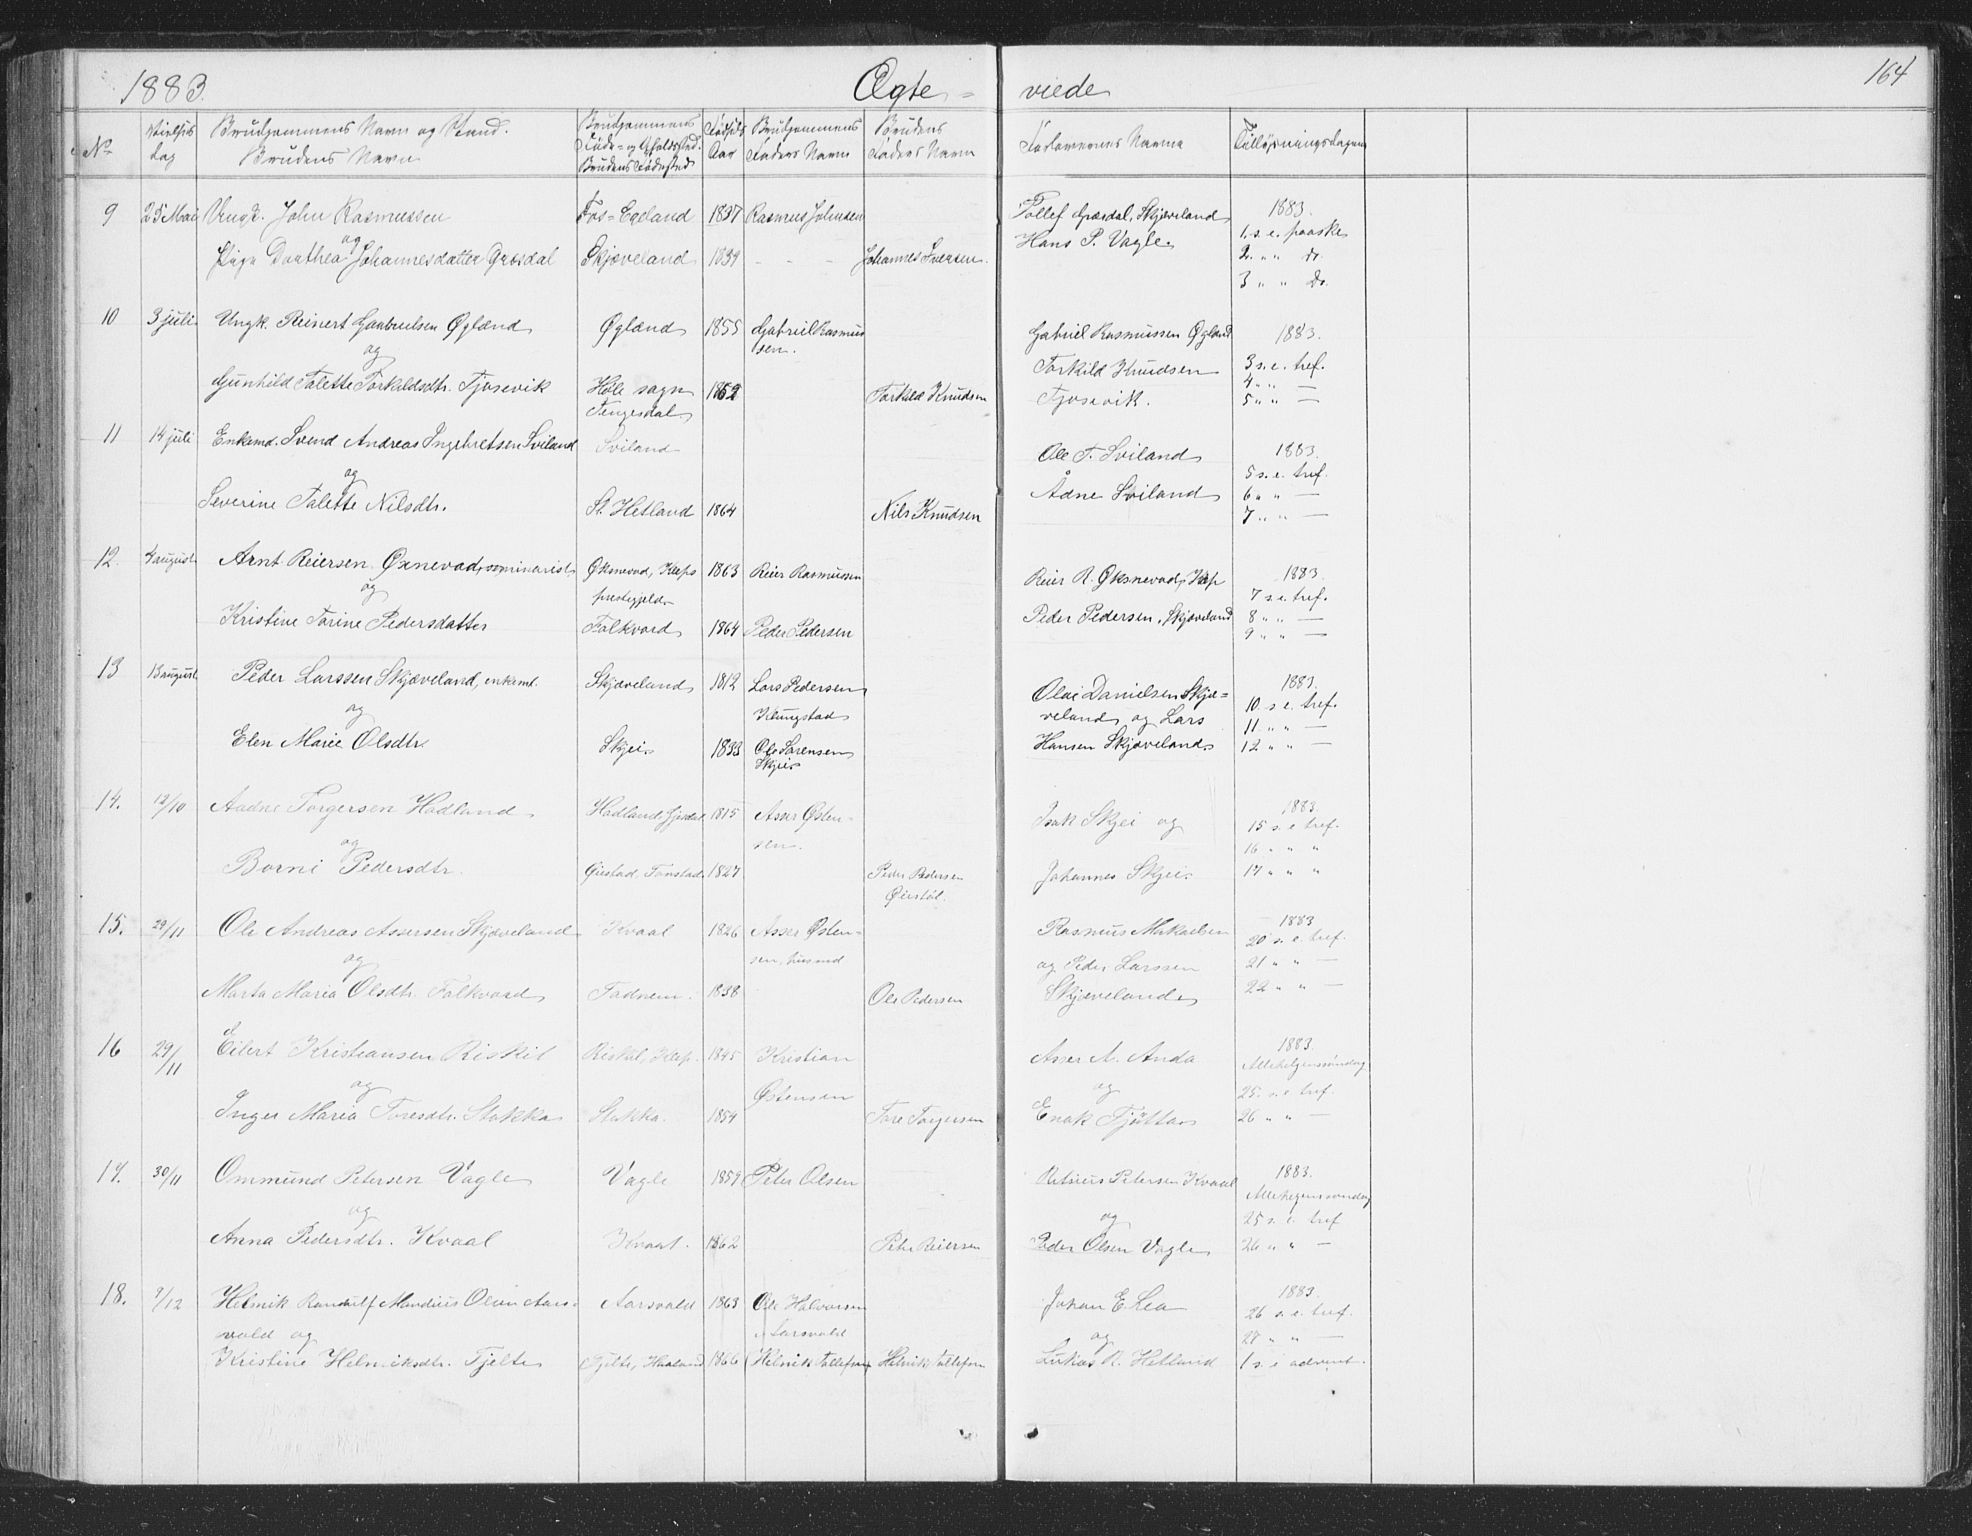 1883. Ægte = viede 164
No Vielses dag Brudgommens Navn og Stand. Brudens Navn Brudgommens Føde- og Opholdssted. Brudens Fødested Fødsels Aar Brudgommens Faders Navn Brudens Faders Navn Forlovernes Navne Tillysningsdagene
9 25 Mai Ungk. John Rasmussen Fos-Egeland 1837 Rasmus Johnsen Tollef Græsdal, Skjæveland 1883.
og Hans P. Vagle. 1. s. e. paaske
Pige Dorthea Johannesdatter Græsdal Skjæveland 1839 - - - Johannes Iversen. 2. " " do.
3 " " do.
10 3 juli. Ungk. Reinert Gabrielsen Øgland Øgland 1855 Gabriel Rasmussen. Gabriel Rasmussen Øgland 1883.
og Torkild Knudsen 3 s. e. tref.
Gunhild Talette Torkildsdtr. Tjosevik Høle sogn 1852 Torkild Knudsen Tjosevik. 4 " " —
Tengesdal 5 " " —
11 14 juli Enkemd. Svend Andreas Ingebretsen Sviland Sviland Ole T. Sviland 1883.
og 5 s. e. tref.
Severine Talette Nilsdtr. St. Hetland 1864 Nils Knudsen Ådne Sviland 6 " " —
7 " " —
12. 4 august Arnt Reiersen Øxnevad, seminarist Øksnevad, Kleps 1863 Reier Rasmussen Reier R. Øksnevad, Klep 1883.
og prestegjeld 7 s. e. tref.
Kristine Torine Pedersdatter Folkvord 1864 Peder Pedersen Peder Pedersen, Skjæveland 8 " " —
9 " " —
13 13 august Peder Larssen Skjæveland, enkemd. Skjæveland 1812 Lars Pedersen Olai Danielsen Skjæ= 1883.
og Klungstad veland og Lars 10 s. e. tref.
11 " " —
Elen Marie Olsdtr. Skjei 1833 Ole Sørensen Hansen Skjæveland 12 " " —
Skjei
14. 12/10 Aadne Torgersen Hadland Hadland, Gjesdal 1815 Asser Østen- Isak Skjei og 1883.
og sen. 15 s. e. tref.
16 " " "
Borni Pedersdtr. 1827 Peder Pedersen Johannes Skjei 17 " " "
15. 29/11 Ole Andreas Assersen Skjæveland Kvaal 1826 Asser Østen- Rasmus Mikaelsen 1883
og sen, husmd og Peder Larssen 20 s. e. tref.
21 " " —
Marta Maria Olsdtr. Folkvord Tadnem. 1838 Ole Pedersen Skjæveland 22 " " —
16 29/11 Eilert Kristiansen Riskil Riskil, Klep. 1845 Kristian Asser A. Anda 1883.
og Østensen og Allehelgenssøndag
25. s. e. tref.
Inger Maria Toresdtr. Stokka Stokka. 1854 Tore Torgersen Enok Tjøtta 26 " " —
17. 30/11 Ommund Petersen Vagle Vagle 1859 Peter Olsen Petersen Kvaal 1883.
og og Allehelgenssøndag
25 s. e. tref
Anna Pedersdtr. Kvaal Kvaal. 1862 Peder Reiersen Peder Olsen Vagle 26 " " —
18. 7/12 Helmik Randulf Mandius Olsen Aars- Aarsvold 1863 Ole Halvorsen Johan E. Lea 1883.
vold og Aarsvold og 26 s. e. tref.
27 " " —
Kristine Helmiksdtr. Tjelta Tjelta, Haaland 1866 (Helmik Tollefsen) Helmik Tollefsen Lukas R. Hetland 1 s. i advent.